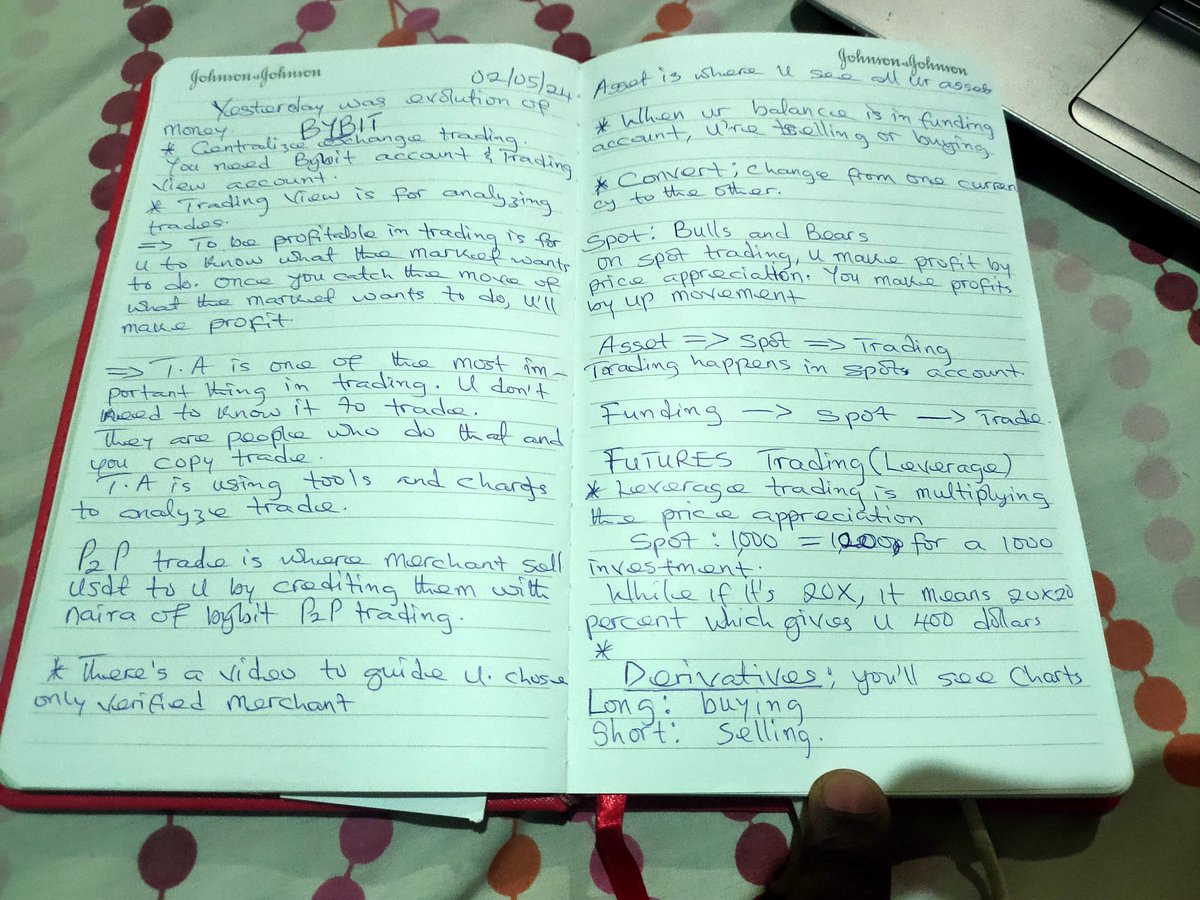 Johnson & Johnson
02/05/24.
Yesterday was evolution of
money BYBIT
* Centralize exchange trading.
You need Bybit account & Trading
View account.
* Trading View is for analyzing
trades.
=> To be profitable in trading is for
u to know what the market wants
to do. Once you catch the move of
what the market wants to do, u'll
make profit.
=> T.A is one of the most im-
portant thing in trading. U don't
need to know it to trade.
They are people who do that and
you copy trade.
T.A is using tools and charts
to analyze trade.
P2P trade is where merchant sell
usdt to u by crediting them with
naira of bybit P2P trading.
* There's a video to guide u. chose
only verified merchant
Johnson & Johnson
Asset is where u see all ur asset
* When ur balance is in funding
account, u're selling or buying
* Convert; change from one curren
cy to the other.
Spot: Bulls and Bears
on spot trading, u make profit by
price appreciation. You make profits
by up movement
Asset => Spot => Trading
Trading happens in spots account.
Funding -> Spot -> Trade.
FUTURES Trading (Leverage)
* Leverage trading is multiplying
the price appreciation
Spot : 1,000 = for a 1000
investment.
While if it's 20X, it means 20x20
percent which gives u 400 dollars
*
Derivatives; you'll see Charts
Long: buying
Short: Selling.